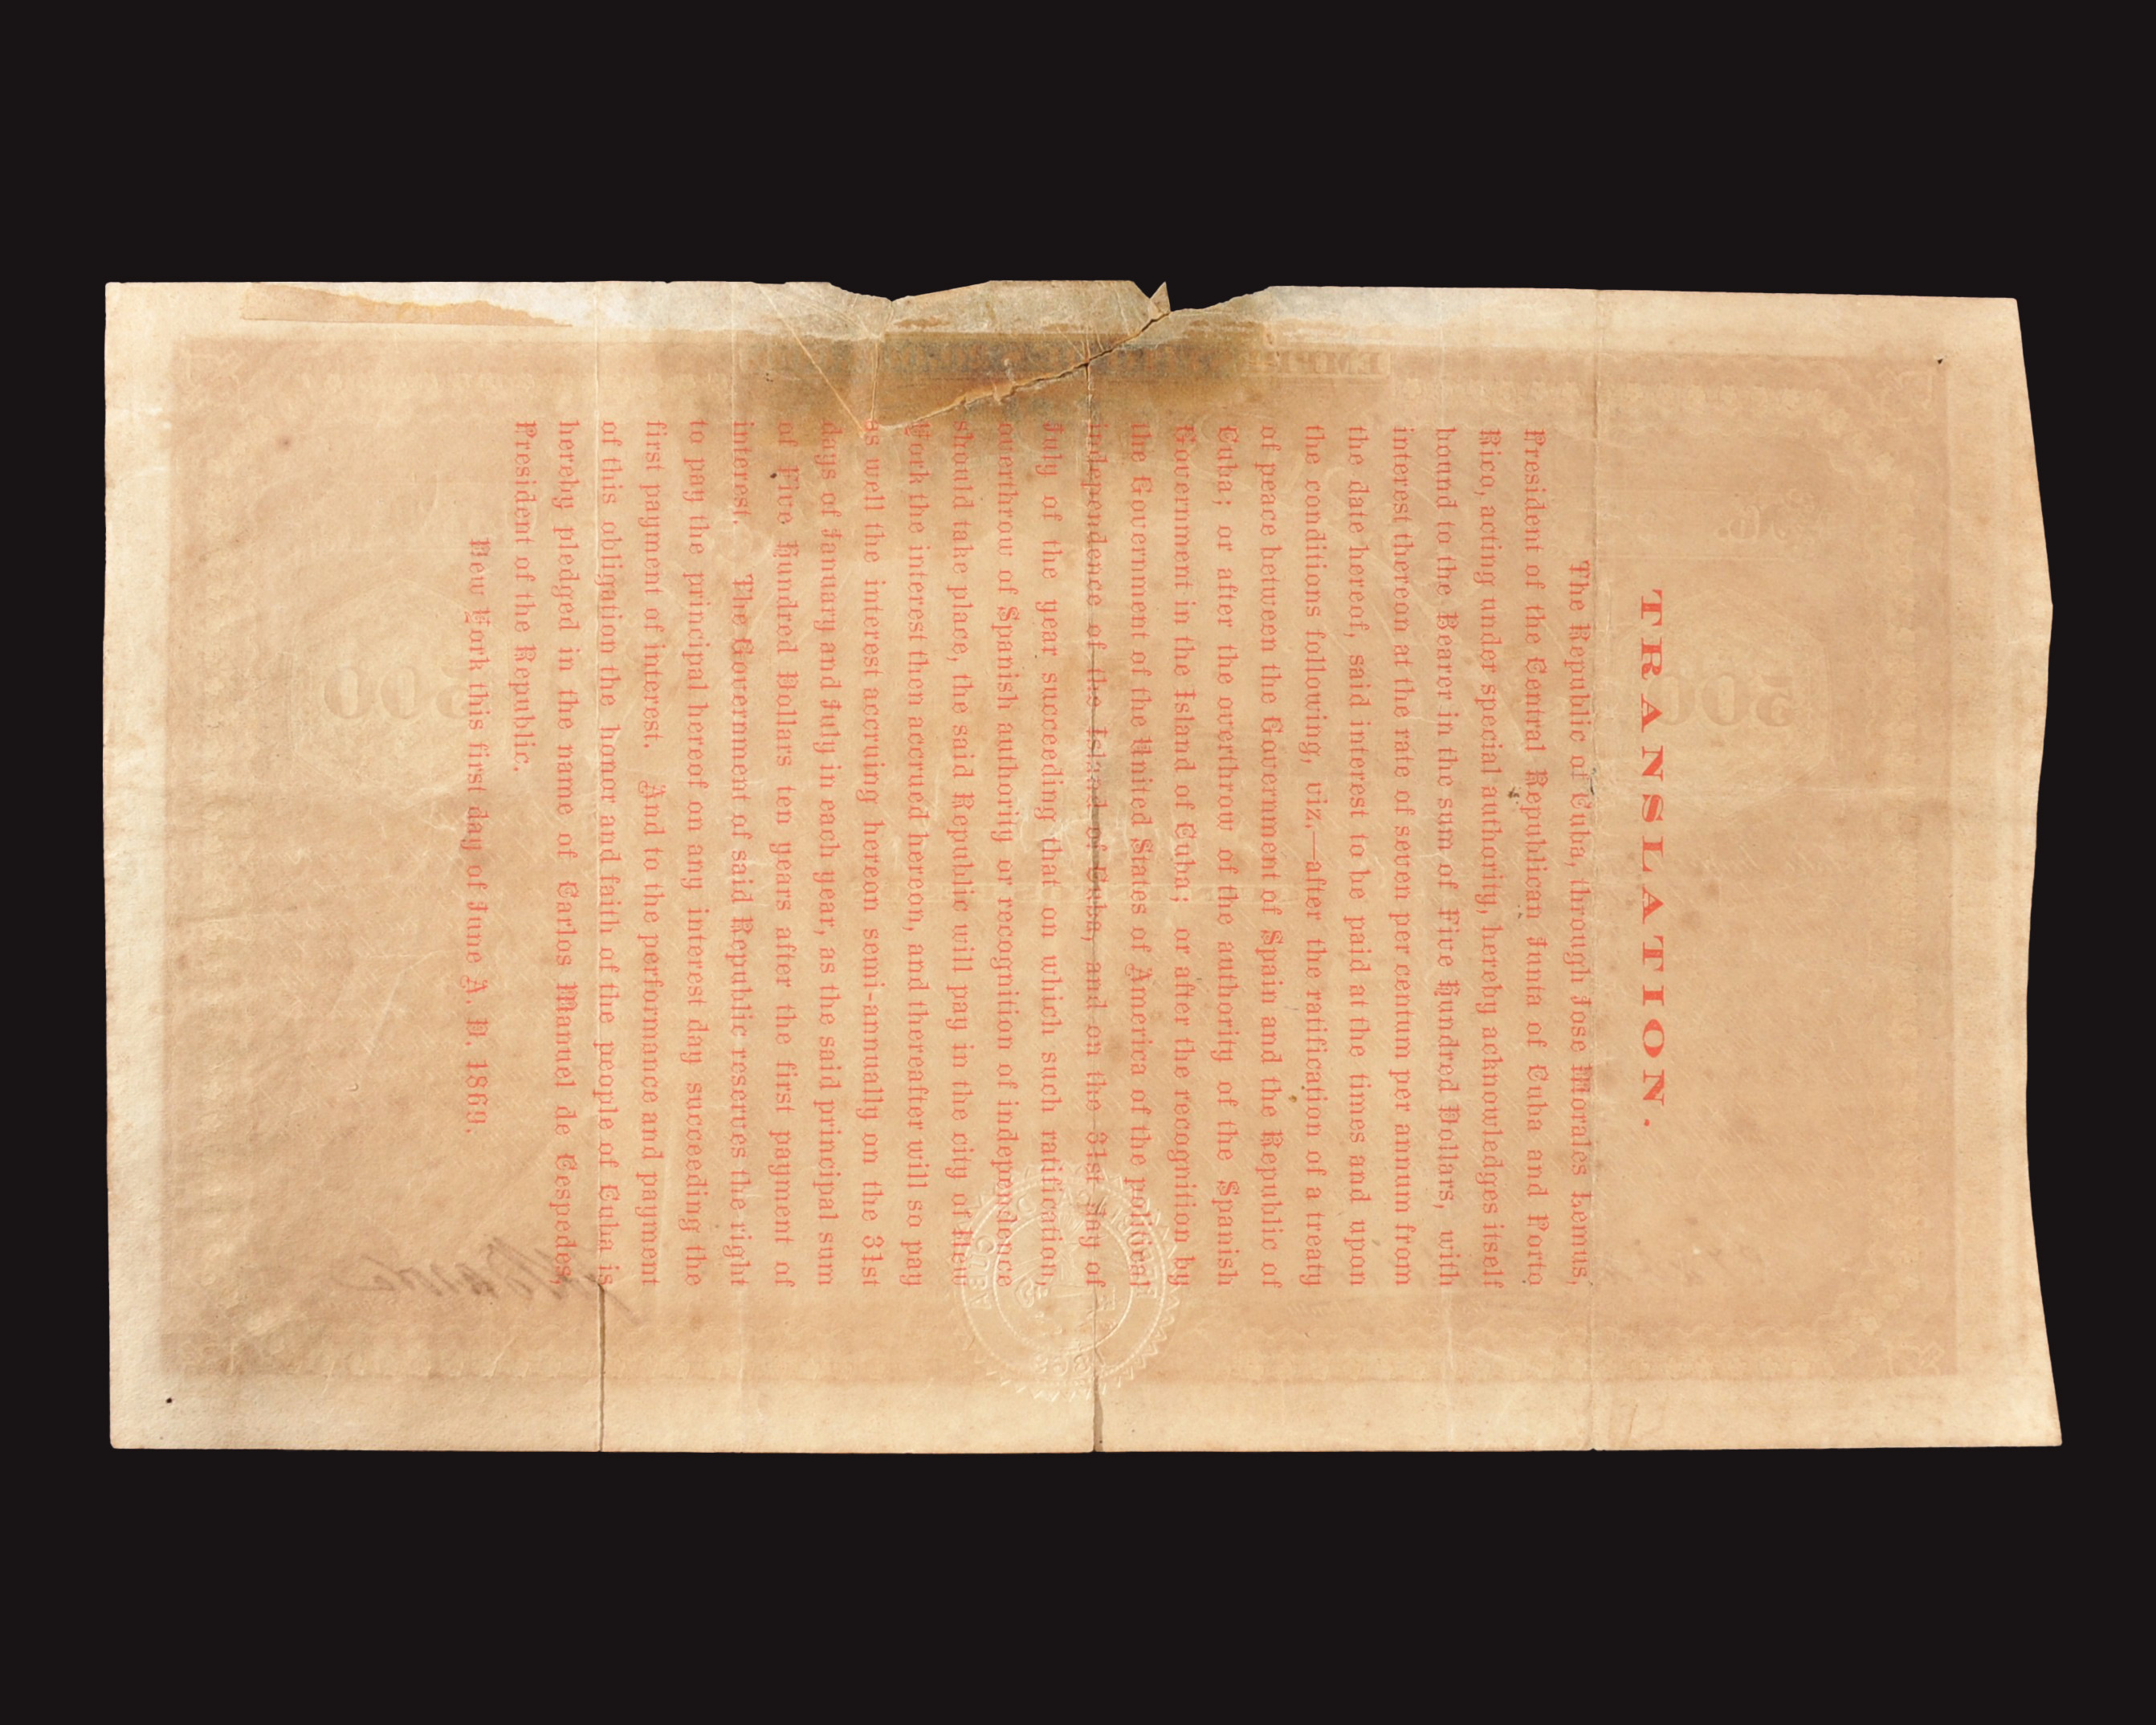 TRANSLATION.
The Republic of Cuba, through Jose Morales Lemus,
President of the Central Republican Junta of Cuba and Porto
Rico, acting under special authority, hereby acknowledges itself
bound to the Bearer in the sum of Five Hundred Dollars, with
interest thereon at the rate of seven per centum per annum from
the date hereof, said interest to be paid at the times and upon
the conditions following, viz.—after the ratification of a treaty
of peace between the Government of Spain and the Republic of
Cuba; or after the overthrow of the authority of the Spanish
Government in the Island of Cuba; or after the recognition by
the Government of the United States of America of the political
independence of the Island of Cuba, and on the 31st day of
July of the year succeeding that on which such ratification,
overthrow of Spanish authority or recognition of independence
should take place, the said Republic will pay in the city of New
York the interest then accrued hereon, and thereafter will so pay
as well the interest accruing hereon semi-annually on the 31st
days of January and July in each year, as the said principal sum
of Five Hundred Dollars ten years after the first payment of
interest. The Government of said Republic reserves the right
to pay the principal hereof on any interest day succeeding the
first payment of interest. And to the performance and payment
of this obligation the honor and faith of the people of Cuba is
hereby pledged in the name of Carlos Manuel de Cespedes,
President of the Republic.
New York this first day of June A. D. 1869.
500
500